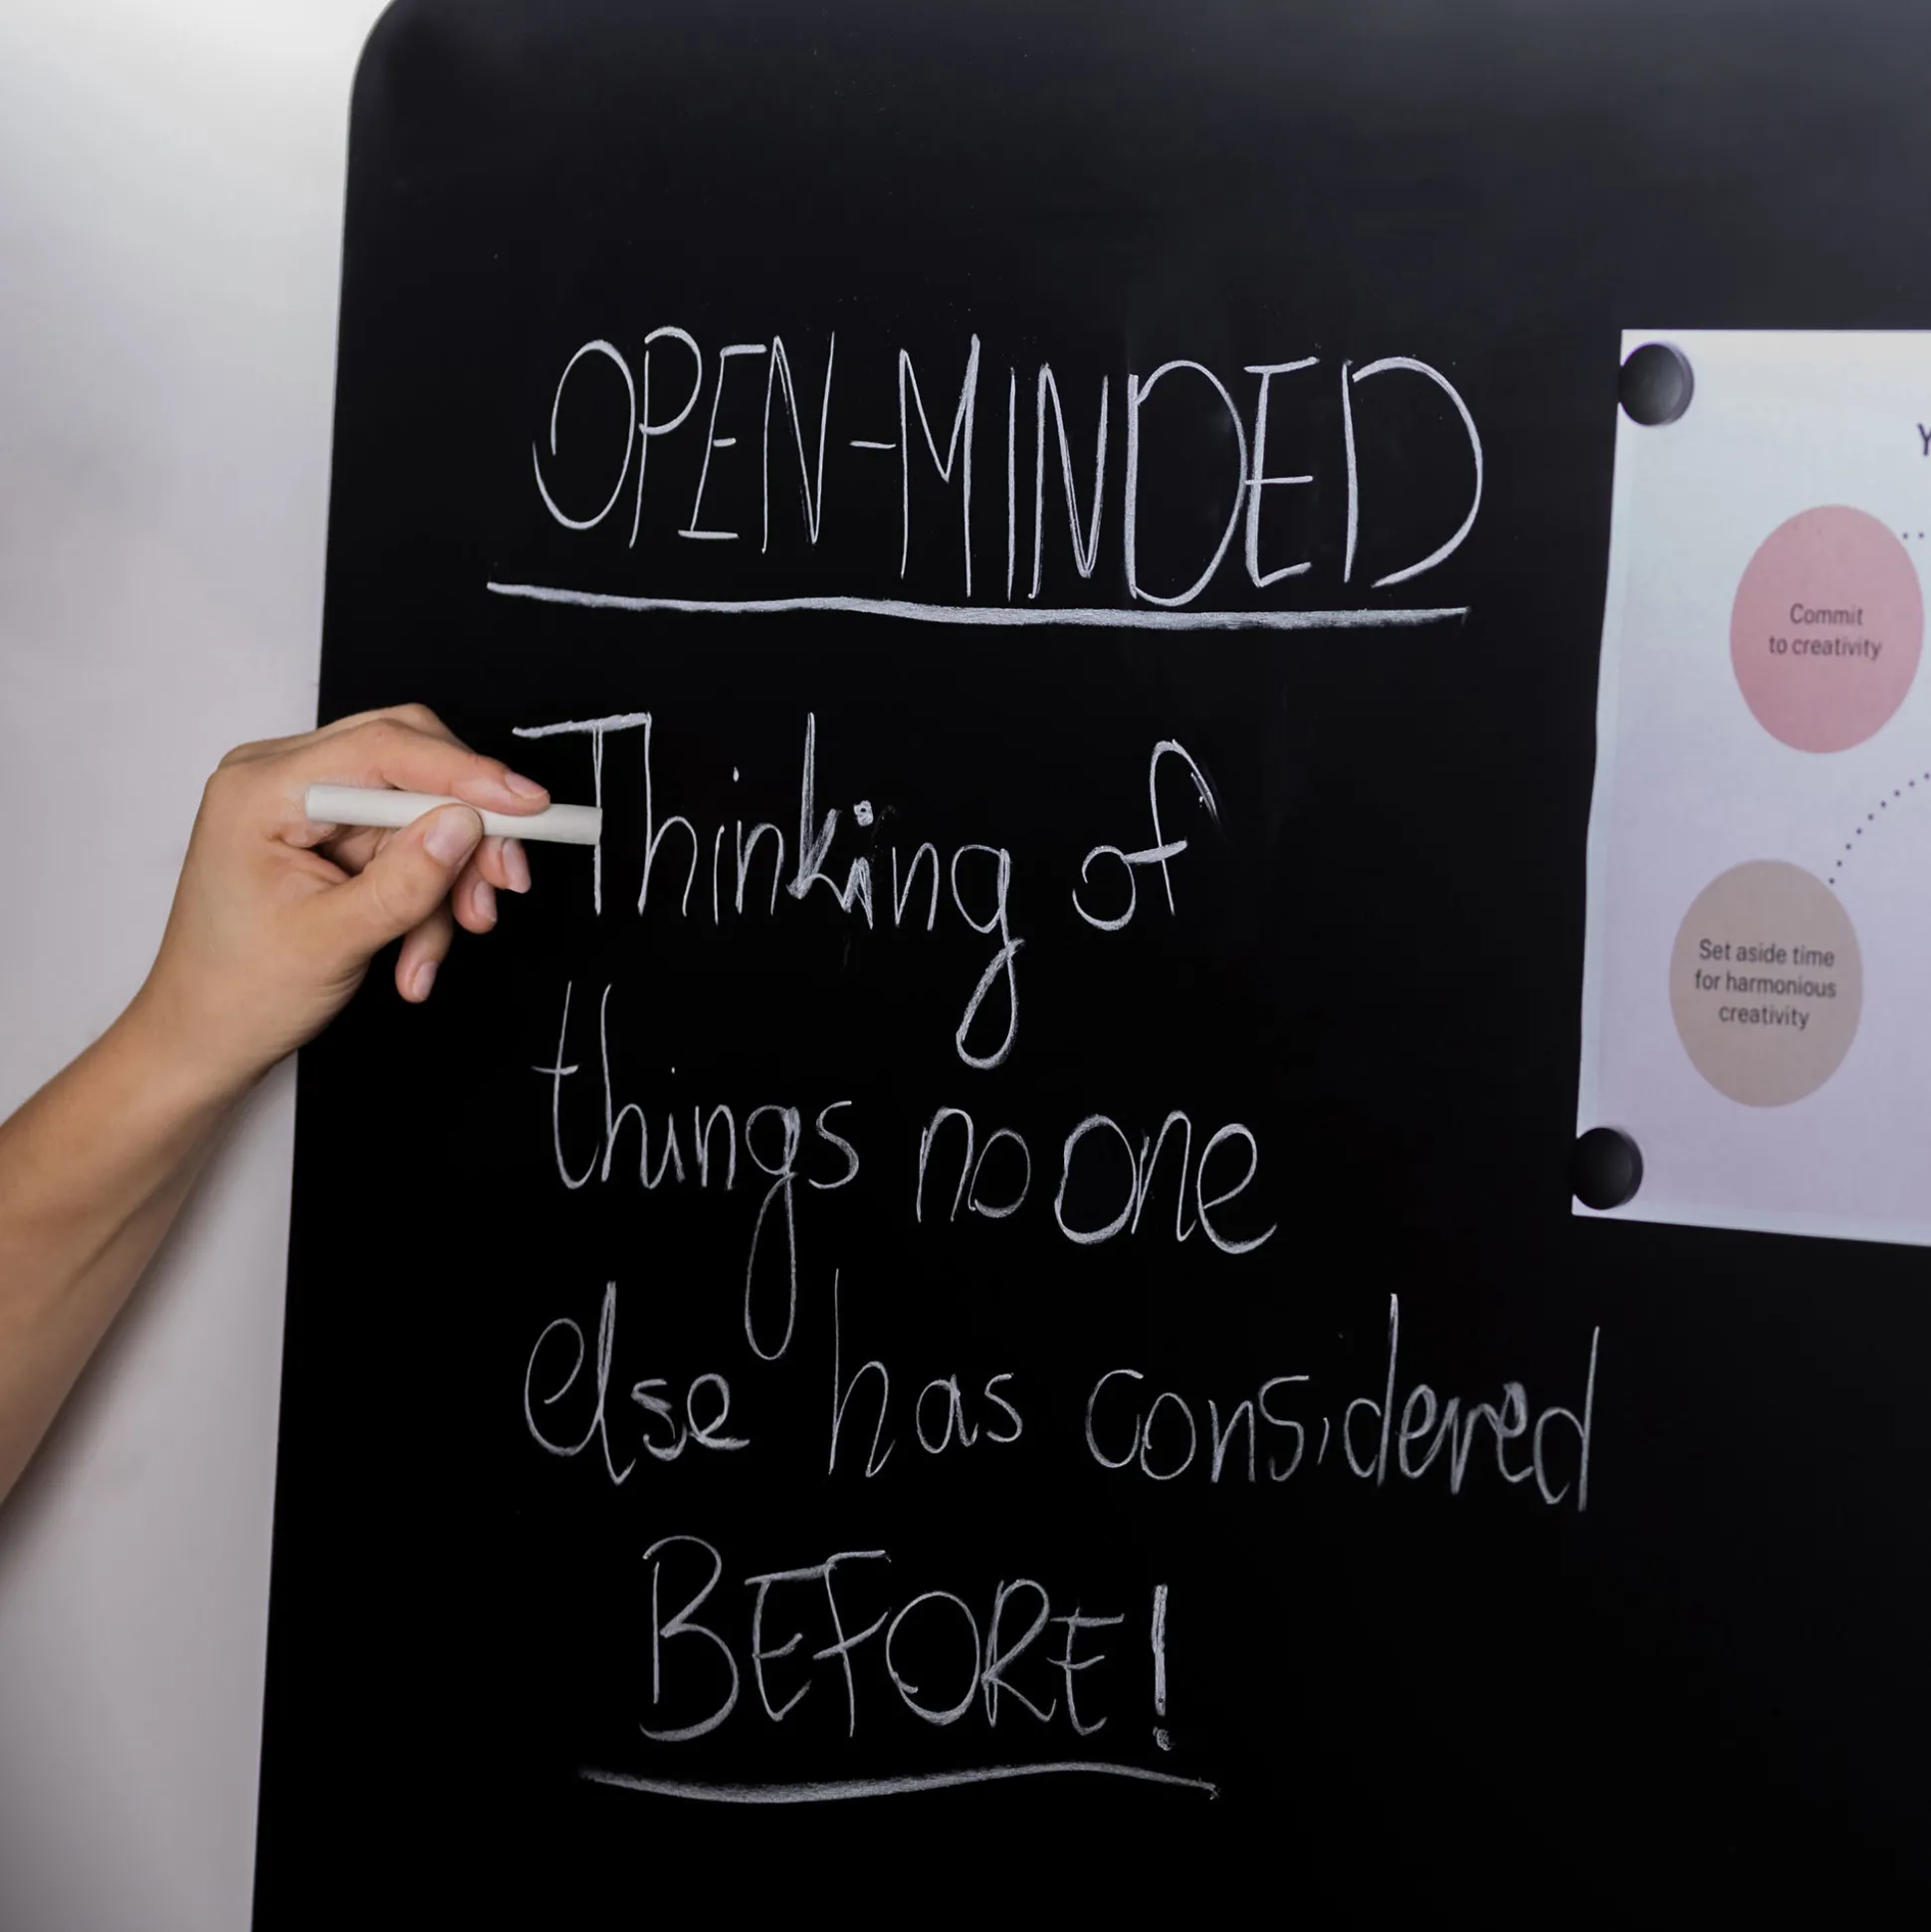 OPEN-MINDED
Thinking of
things no one
else has considered
BEFORE!
Y
Commit
to creativity
Set aside time
for harmonious
creativity